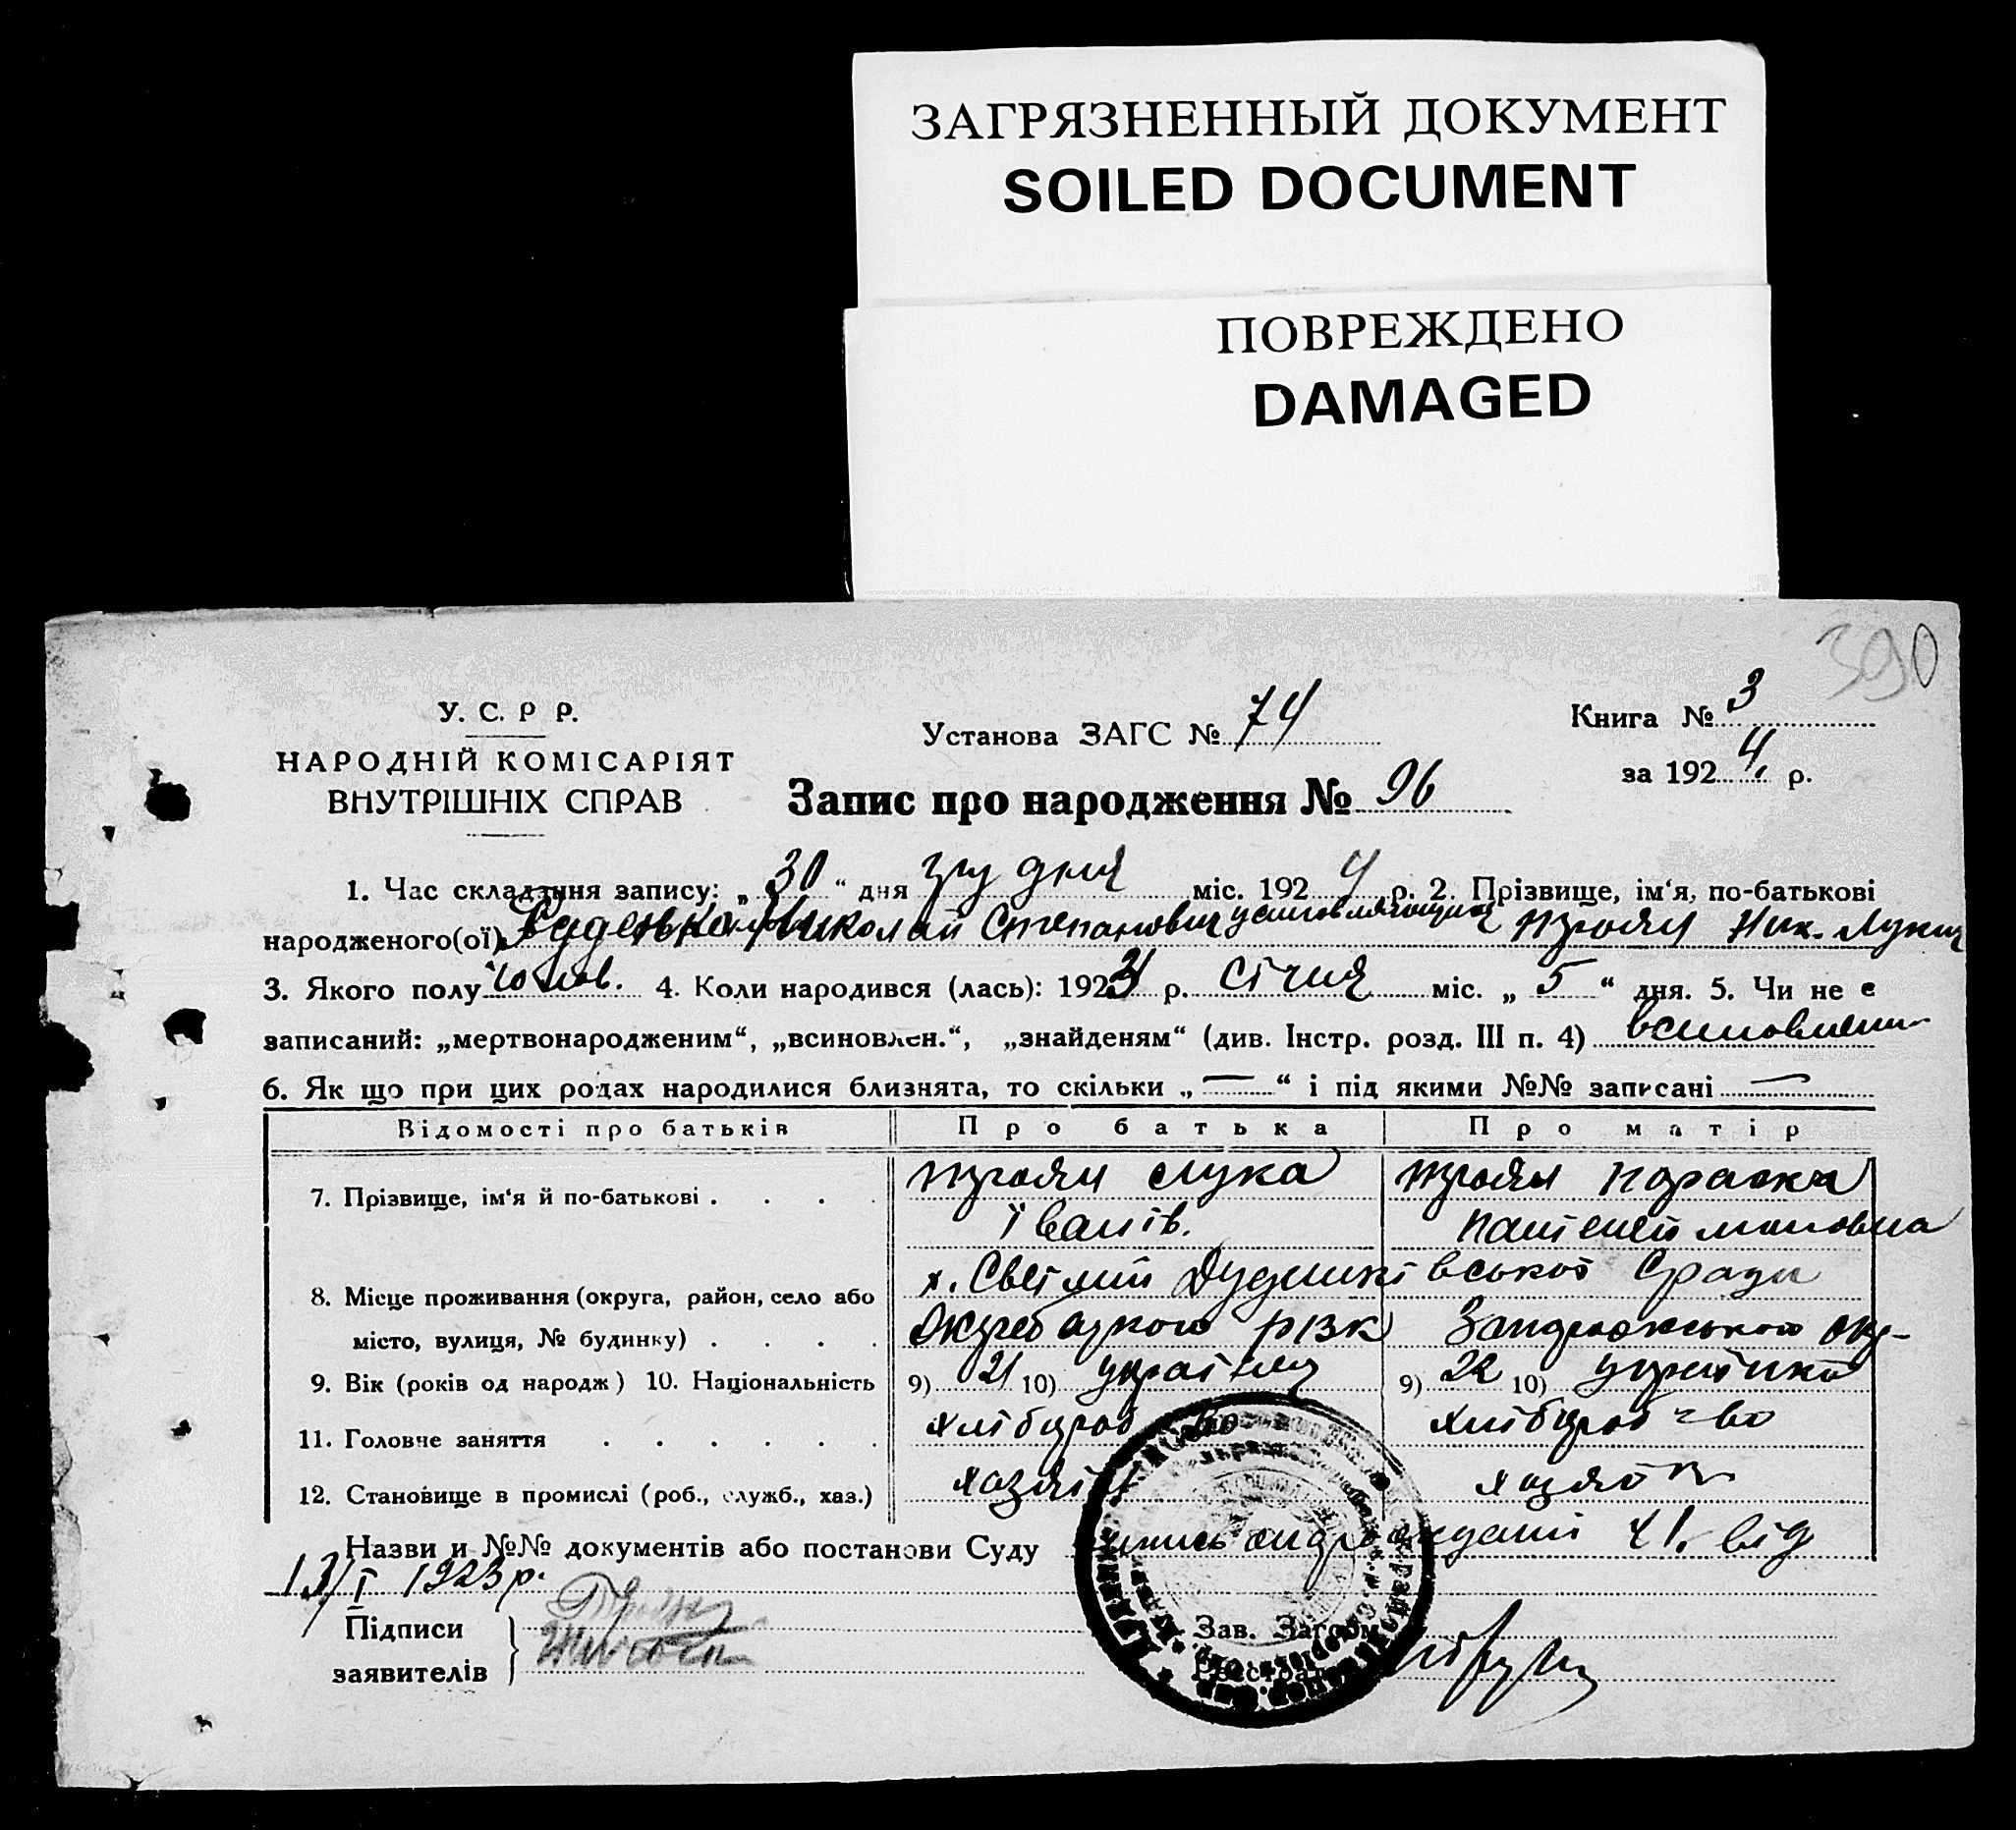 ЗАГРЯЗНЕННЫЙ ДОКУМЕНТ
SOILED DOCUMENT
ПОВРЕЖДЕНО
DAMAGED
390
У. С. Р Р.
НАРОДНІЙ КОМІСАРІЯТ
ВНУТРІШНІХ СПРАВ
Установа ЗАГС № 74
Книга № 3
за 1924 р.
Запис про народження № 96
1. Час складзння запису: „30“ дня грудня міс. 1924 р. 2. Прізвище, ім‘я, по-батькові
народженого(ої) Николай Степанович Троян Ник. Лукич
3. Якого полу чолов. 4. Коли народився (лась): 192 р. Січня міс. „5“ дня. 5. Чи не є
записаний: „мертвонародженим“, „всиновлен.“, „знайденям“ (див. Інстр. розд. III п. 4) всиновлени
6. Як що при цих родах народилися близнята, то скільки „—“ і під якими №№ записані —
Відомості про батьків Про батька Про матір
7. Прізвище, ім‘я й по-батькові . . . . Троян Лука Троян Параска
Іванів. Пантелеймоновна
8. Місце проживання (округа, район, село або х. Світлий Дудниківської Сради
місто, вулиця, № будинку) . . . . РВК Запорожської окр-
9. Вік (років од народж) 10. Національність 9) 21 10) українец 9) 22 10) українка
11. Головне заняття . . . . . . хлібороб во хлібороб-во
12. Становище в промислі (роб., служб., хаз.) хазяін хазяйк
Назви и №№ документів або постанови Суду 41. від
13/I 1923 р.
Підписи
заявителів
Зав. Загсом